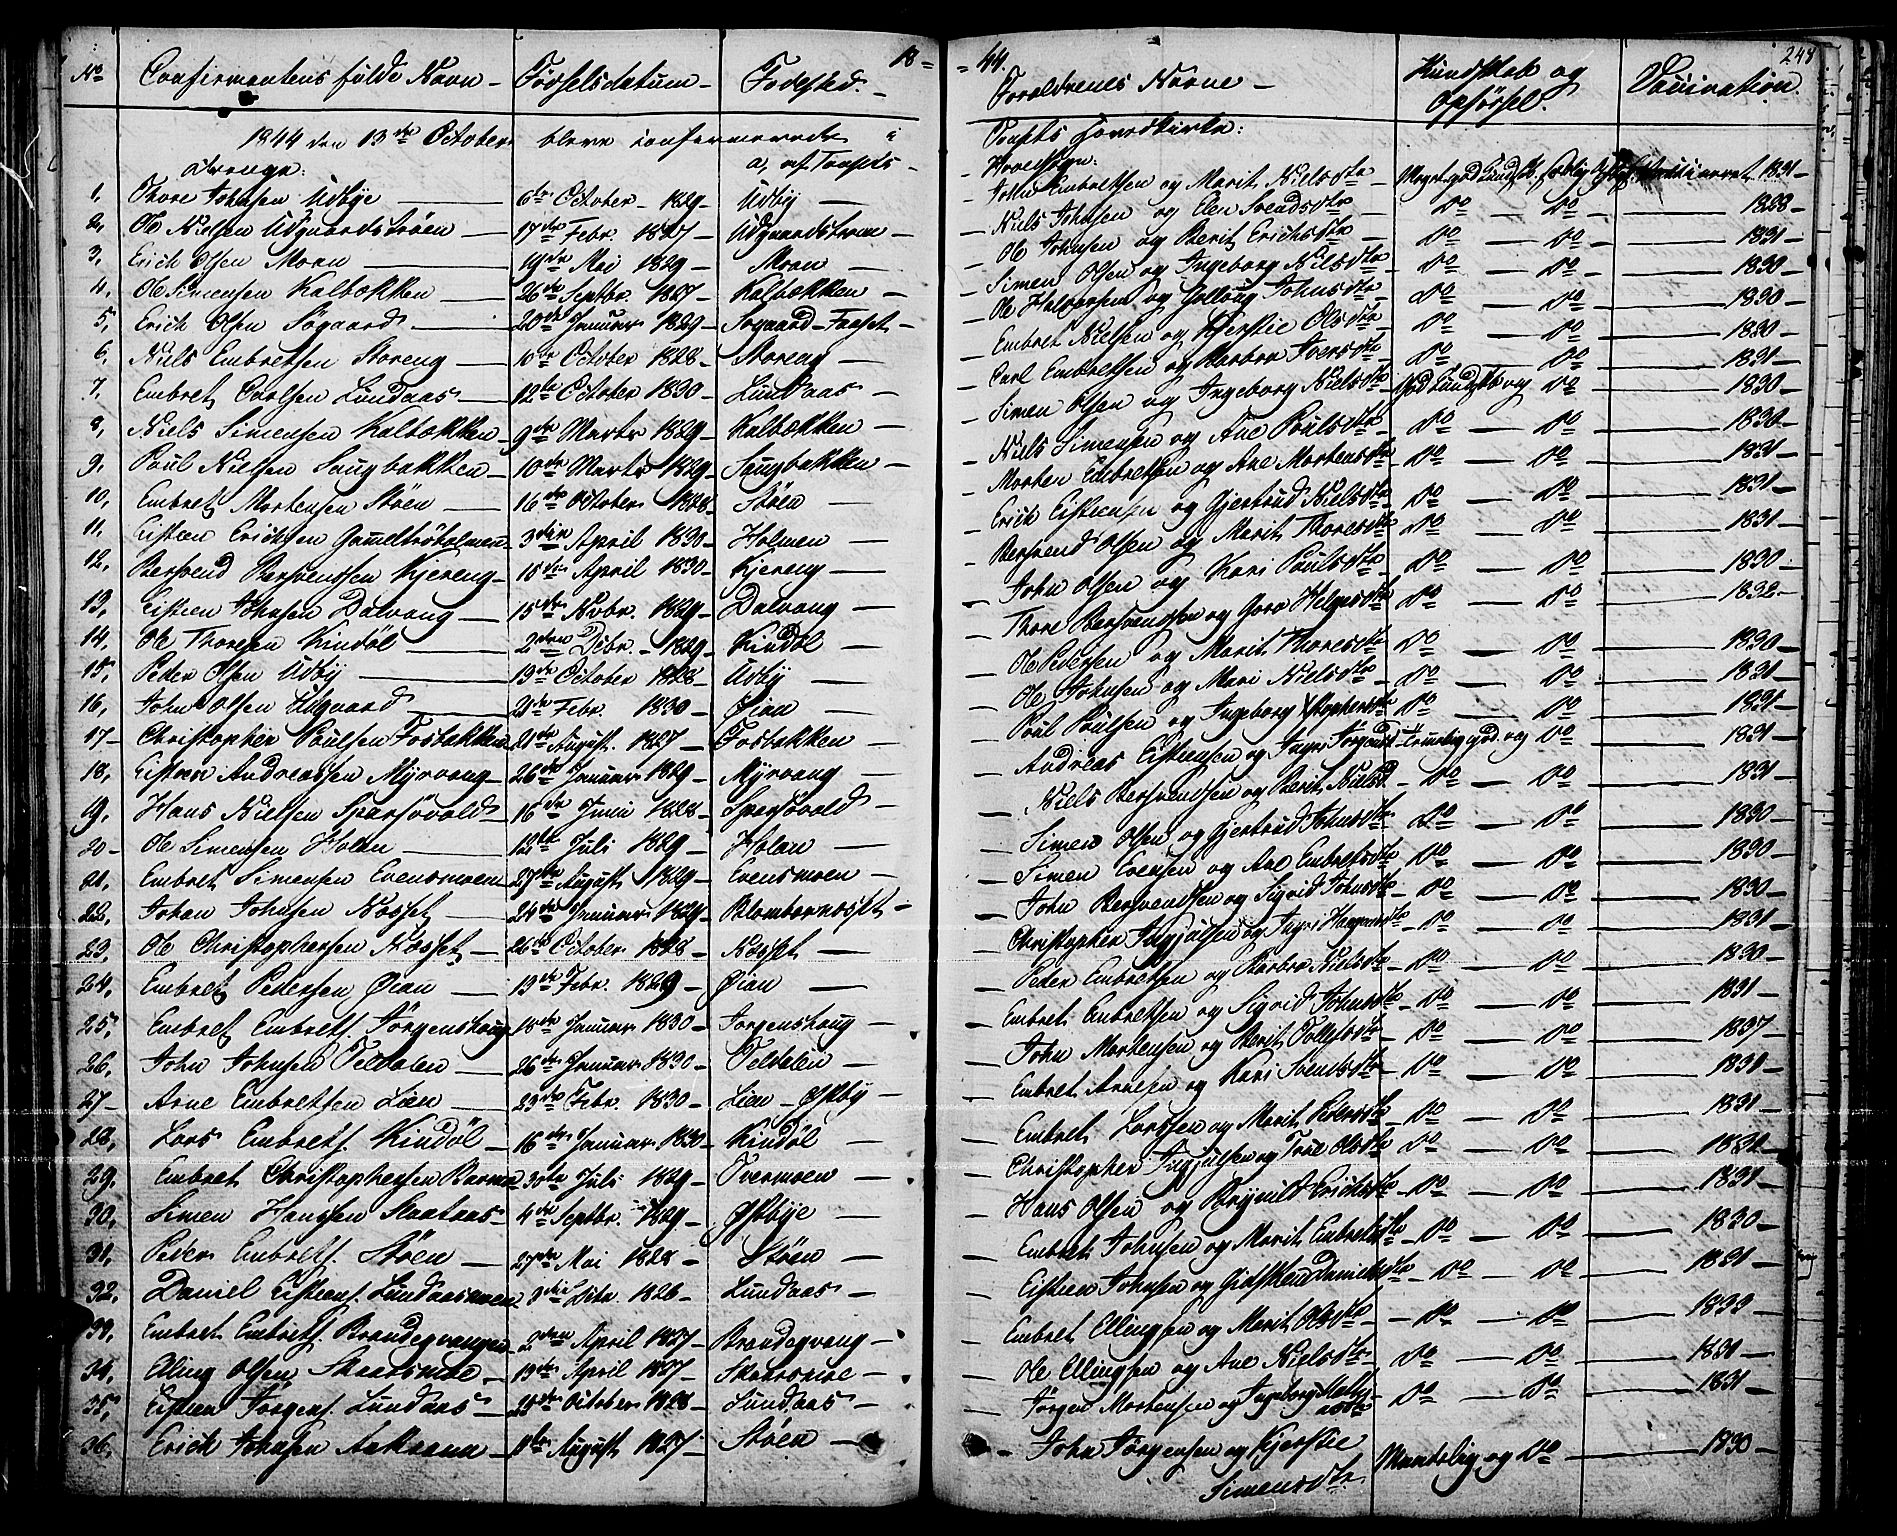 18 = = 44. 248
No Confirmantens fulde Navn Fødselsdatum Fødested. Forældrenes Navne Kundskab og Opførsel. Vaccination
1844 den 13de October bleve confirmerede i Hovedkirke:
Drenge: a, af
1, Thore Johnsen Udbye 6te October 1829 Udby John Embretsen og Marit Nielsdtr 1831
2, Ole Nielsen Udgaardstrøen 17de Febr. 1827 Udgaardstrøen Niels Johnsen og Elen Svendsdtr Do Do 1828
3, Erich Olsen Moan 19de Mai 1829 Moan Ole Johnsen og Berit Erichsdtr Do Do 1831
4, Ole Simensen Kalbækken 26de Septbr. 1827 Kalbækken Simen Olsen og Ingeborg Nielsdtr Do Do 1830
5, Erich Olsen Søgaard 20de Januar 1829 Søgaard Ole Halvorsen og Johnsdtr Do Do 1830
6, Niels Embretsen Storeng 10de October 1828 Storeng Embret Nielsen og Kjerstie Olsdtr Do Do 1830
7, Embret Carlsen Lundaas 12te October 1830 Lundaas Carl Embretsen og Barbra Iversdtr Do Do 1831
8, Niels Simensen Kalbækken 9de Marts 1829 Kalbækken Simen Olsen og Ingeborg Nielsdtr God Kundskb og Do 1830
9, Poul Nielsen Saugbakken 10de Marts 1829 Saugbakken Niels Simensen og Ane Poulsdtr Do Do 1830
10, Embret Mortensen Støen 16de October 1828 Støen Morten Embretsen og Ane Mortensdtr Do Do 1831
11, Eisteen Erichsen 3die April 1830 Holmen Erich Eisteensen og Gjertrud Nielsdtr Do Do 1831
12, Bersvend Bersvendsen Kjereng 15de April 1830 Kjereng Bersvend Olsen og Marit Thoresdtr Do Do 1831
13, Eisteen Johnsen Dalvang 15de Novbr. 1829 Dalvang John Olsen og Kari Poulsdtr Do Do 1830
14, Ole Thoresen Kindøl 2den Debr. 1829 Kindøl Thore Bersvendsen og Goro Helgesdtr Do Do 1832
15, Peder Olsen Udby 19de October 1828 Udby Ole Pedersen og Marit Thoresdtr Do Do 1830
16, John Olsen Udgaard Febr. 1830 Øian Ole Johnsen og Mari Nielsdtr Do Do 1831
17 Christopher Poulsen Fosbakken 21de August 1827 Fosbakken Poul Poulsen og Ingeborg Do Do 1831
18, Eisteen Andreassen Myrvang 26de Januar 1829 Myrvang Andreas Eisteensen og Inger Jørgensd Temmelig god og Do 1831
19, Hans Nielsen Sparsøvold 16de Juni 1828 Sparsøvold Niels Bersvendsen og Berit Nielsd Do Do 1831
20 Ole Simensen Holen 12te Juli 1829 Holen Simen Olsen og Gjertrud Johnsdtr Do Do 1830
21, Embret Simensen Evensmoen 27de August 1829 Evensmoen Simen Evensen og Ane Embretsdtr Do Do 1830
22, Johan Johnsen Næsset 24de Januar 1829 John Bersvendsen og Sigrid Johnsdtr Do Do 1830
23, Ole Christophersen Næsset 26de October 1828 Næsset Christopher Ingjulsen og Do Do 1831
24, Embret Pedersen Øian 19de Febr. 1829 Øian Peder Embretsen og Barbro Nielsdtr Do Do 1830
25, Embret Embrets. Jørgenshaug 18de Januar 1830 Jørgenshaug Embret Embretsen og Sigrid Johnsdtr Do Do 1831
26, John Johnsen Teldalen 26de Januar 1830 Teldalen John Mortensen og Berit Tollefsdtr Do Do 1837
27 Arne Embretsen Lien 23de Febr. 1830 Lien Østby Embret Arnesen og Kari Svendsdtr Do Do 1831
28, Lars Embrets. Kindøl 16de Januar 1830 Kindøl Embret Larssen og Marit Pedersdtr Do Do 1831
29, Embret Christophersen 30te Juli 1829 Tvermoen Christopher Ingjulsen og Olsdtr Do Do 1831
30, Simen Hanssen 4de Septbr. 1829 Østbye Hans Olsen og Brynild Erichsdtr Do Do 1831
31, Peder Embrets. Støen 27de Mai 1828 Støen Embret Johnsen og Marit Embretsdtr Do Do 1830
32, Daniel Eisteens. Lundaasmoen 3die Debr. 1826 Lundaas Eisteen Johnsen og Danielsdtr Do Do 1831
33, Embret Embrets. Brandegvangen 2den April 1827 Brandegvang Embret Ellingsen og Marit Olsdtr Do Do 1833
34, Elling Olsen Skaarsmoe 19de April 1827 Skaarsmoe Ole Ellingsen og Ane Nielsdtr Do Do 1831
35, Eisteen Jørgens. Lundaas October 1828 Lundaas Jørgen Mortensen og Ingeborg Do Do 1831
36, Erich Johnsen 11te August 1827 Støen John Jørgensen og Kjerstie Simensdtr Maadelig og Do 1830